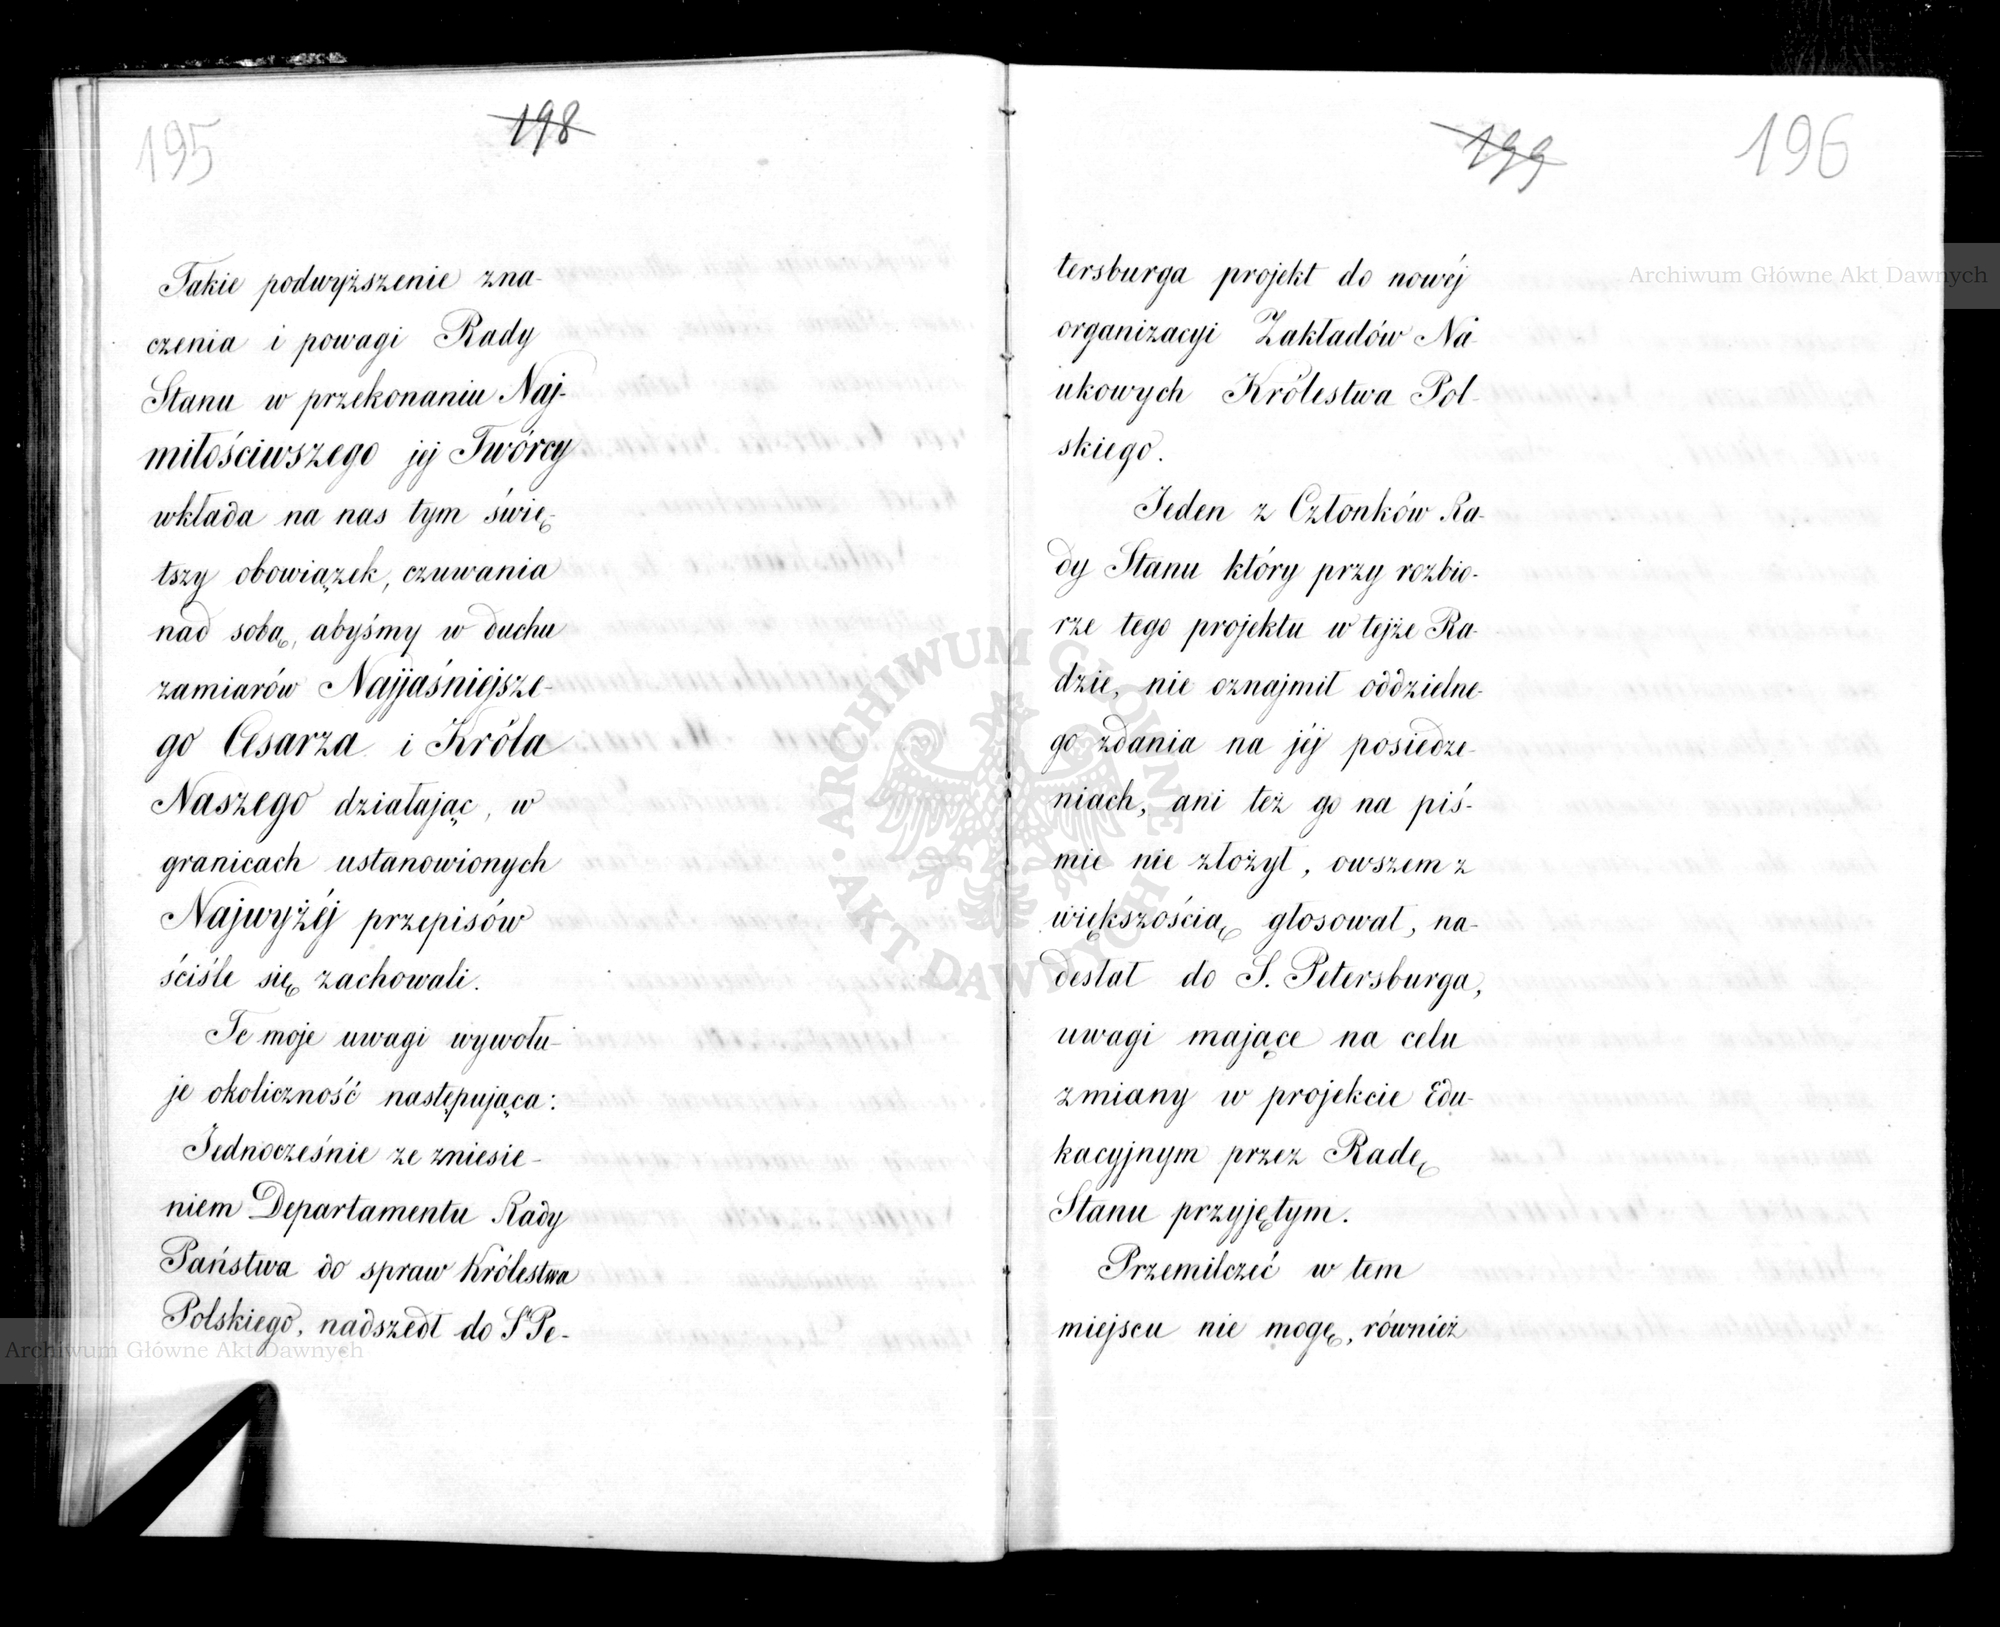 195
198
Takie podwyższenie zna-
czenia i powagi Rady
Stanu w przekonaniu Naj-
miłościwszego jej Twórcy
wkłada na nas tym świę-
tszy obowiązek, czuwania
nad sobą, abyśmy w duchu
zamiarów Najjaśniejsze-
go Cesarza i Króla
Naszego działając, w
granicach ustanowionych
Najwyżéj przepisów
ściśle się zachowali.
Te moje uwagi wywołu-
je okoliczność następująca:
Jednocześnie ze zniesie-
niem Departamentu Rady
Państwa do spraw Królestwa
Polskiego, nadszedł do St Pe-
199
196
tersburga projekt do nowéj
organizacyi Zakładów Na-
ukowych Królestwa Pol-
skiego.
Jeden z Członków Ra-
dy Stanu który przy rozbio-
rze tego projektu w tejże Ra-
dzie, nie oznajmił oddzielne-
go zdania na jéj posiedze-
niach, ani też go na piś-
mie nie złożył, owszem z
większością głosował, na-
desłał do S. Petersburga,
uwagi mające na celu
zmiany w projekcie Edu-
kacyjnym przez Radę
Stanu przyjętym.
Przemilczeć w tem
miejscu nie mogę, również
Archiwum Główne Akt Dawnych
Archiwum Główne Akt Dawnych
ARCHIWUM GŁÓWNE
AKT DAWNYCH